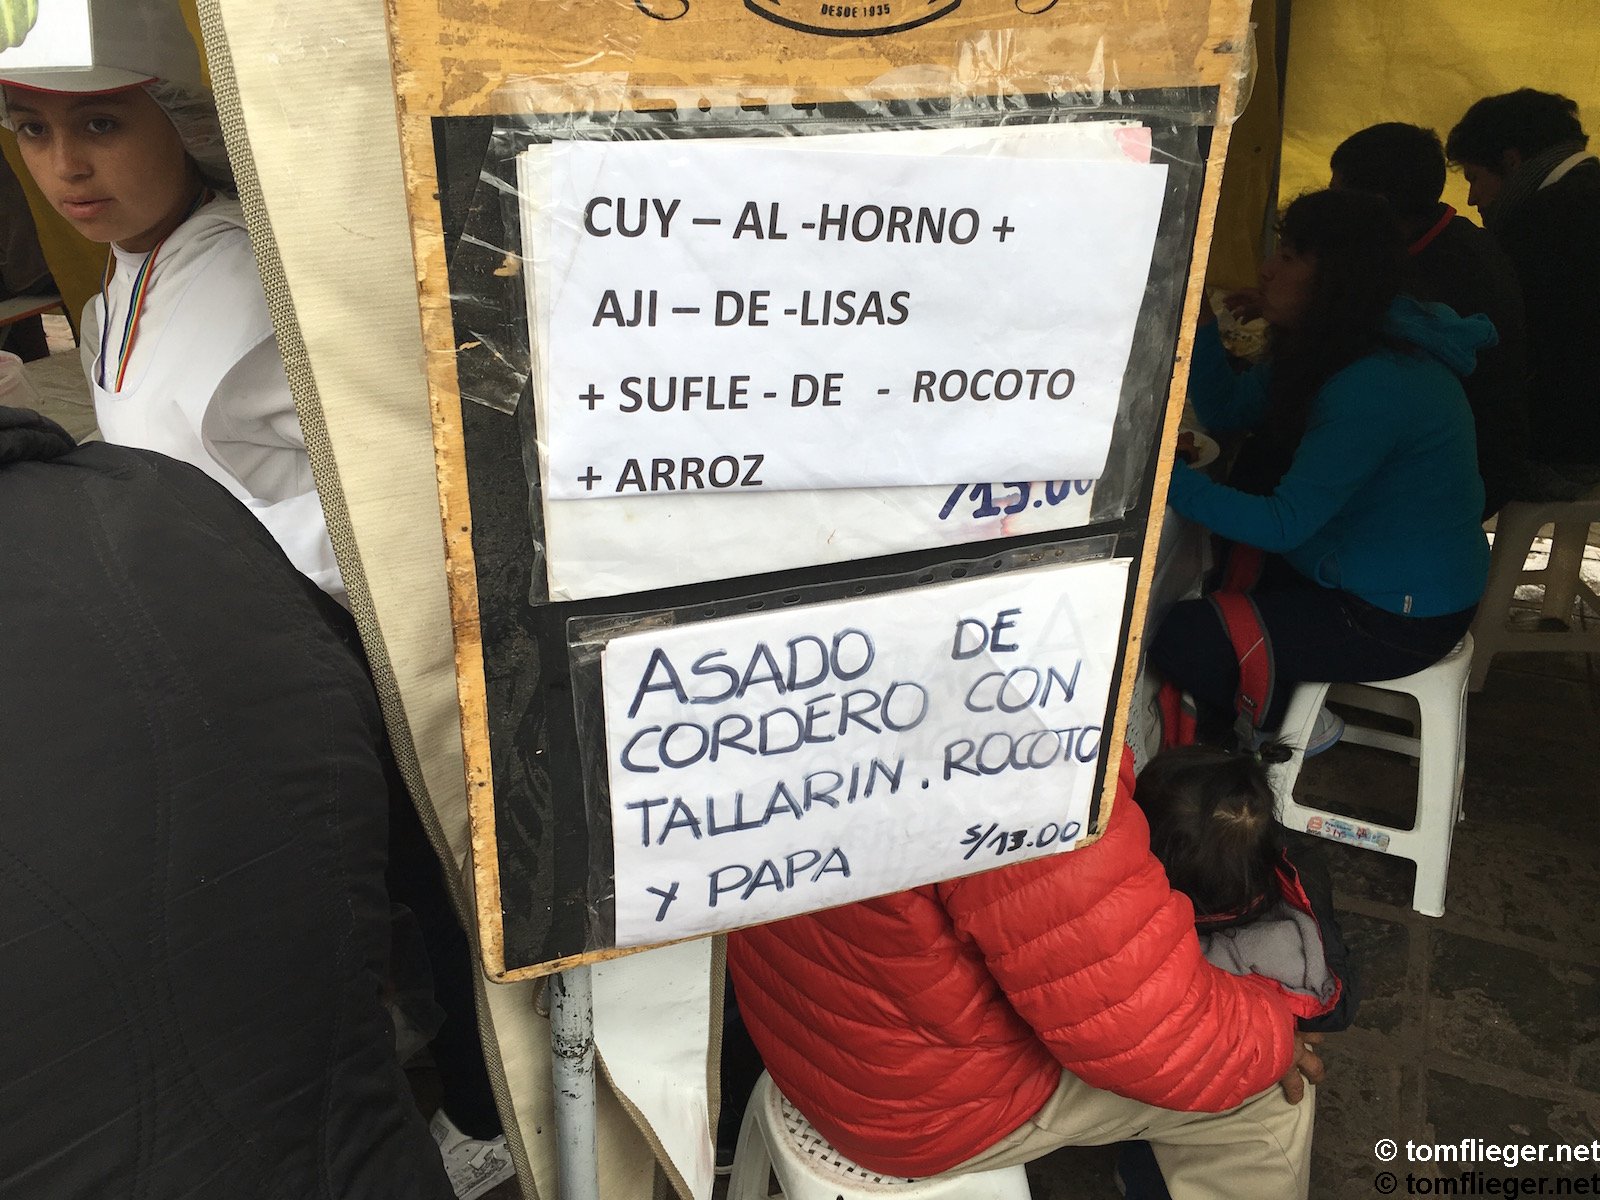 DESDE 1935
CUY – AL -HORNO +
AJI – DE -LISAS
+ SUFLE - DE - ROCOTO
+ ARROZ
ASADO DE
CORDERO CON
TALLARIN . ROCOTO
Y PAPA S/13.00
© tomflieger.net
© tomflieger.net